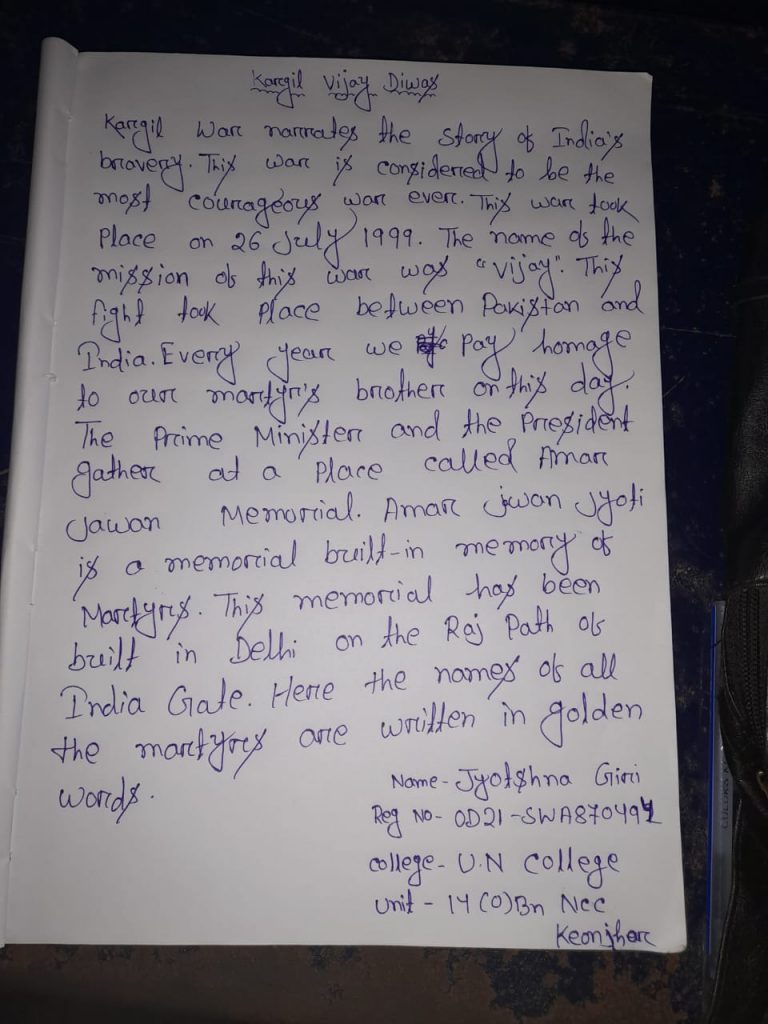 Kargil Vijay Diwas
Kargil War narrates the story of India's
bravery. This war is considered to be the
most courageous war ever. This war took
Place on 26 July 1999. The name of the
mission of this war was "Vijay". This
fight took place between Pakistan and
India. Every year we pay homage
to our martyr's brother on this day.
The Prime Minister and the President
gather at a place called Amar
Jawan Memorial. Amar jwan Jyoti
is a memorial built-in memory of
Martyrs. This memorial has been
built in Delhi on the Raj Path of
India Gate. Here the names of all
the martyrs are written in golden
words.
Name - Jyotshna Giri
Reg No- OD21-SWA870494
college - U.N College
Unit - 14 (O) Bn Ncc
Keonjhar